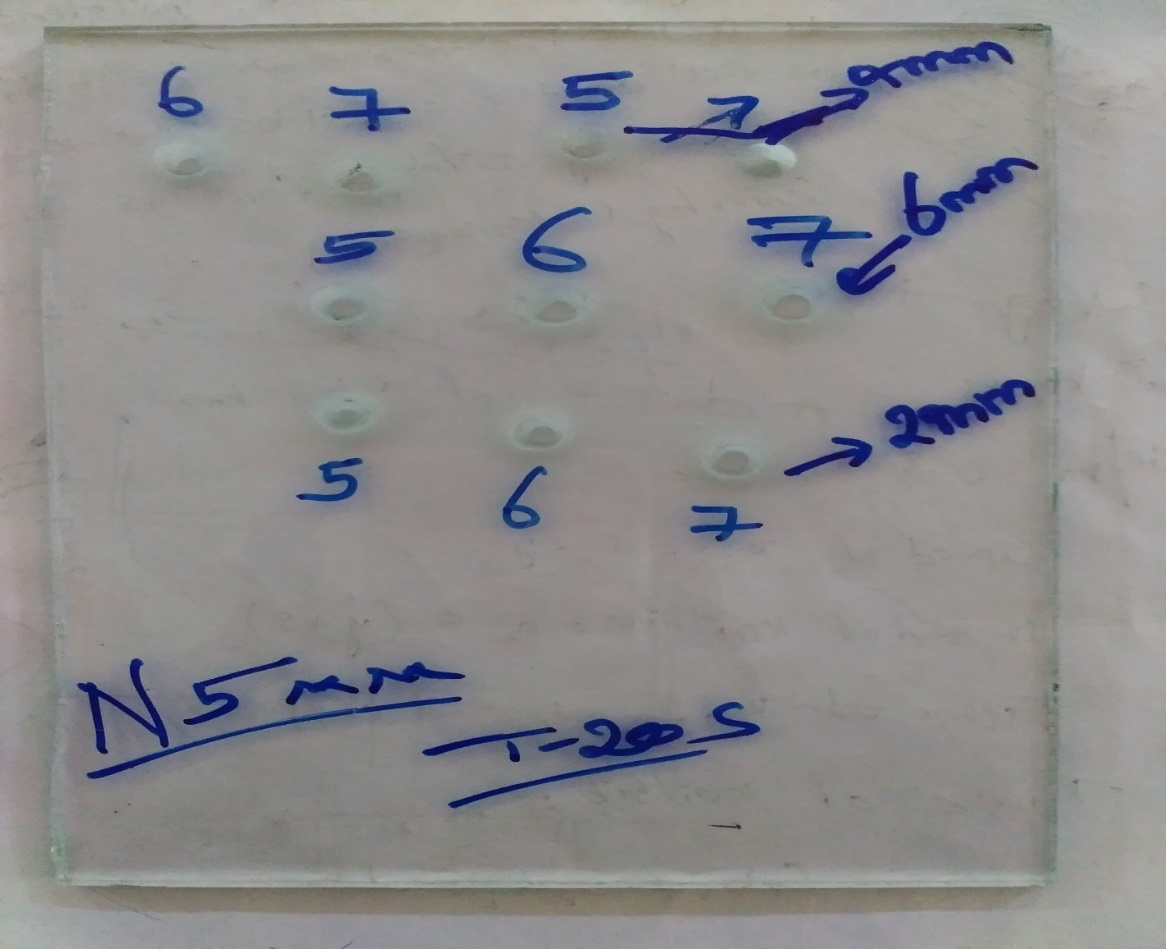 6 7 5 7 9mm
5 6 7 6mm
5 6 7 2mm
N 5mm
T-200 S